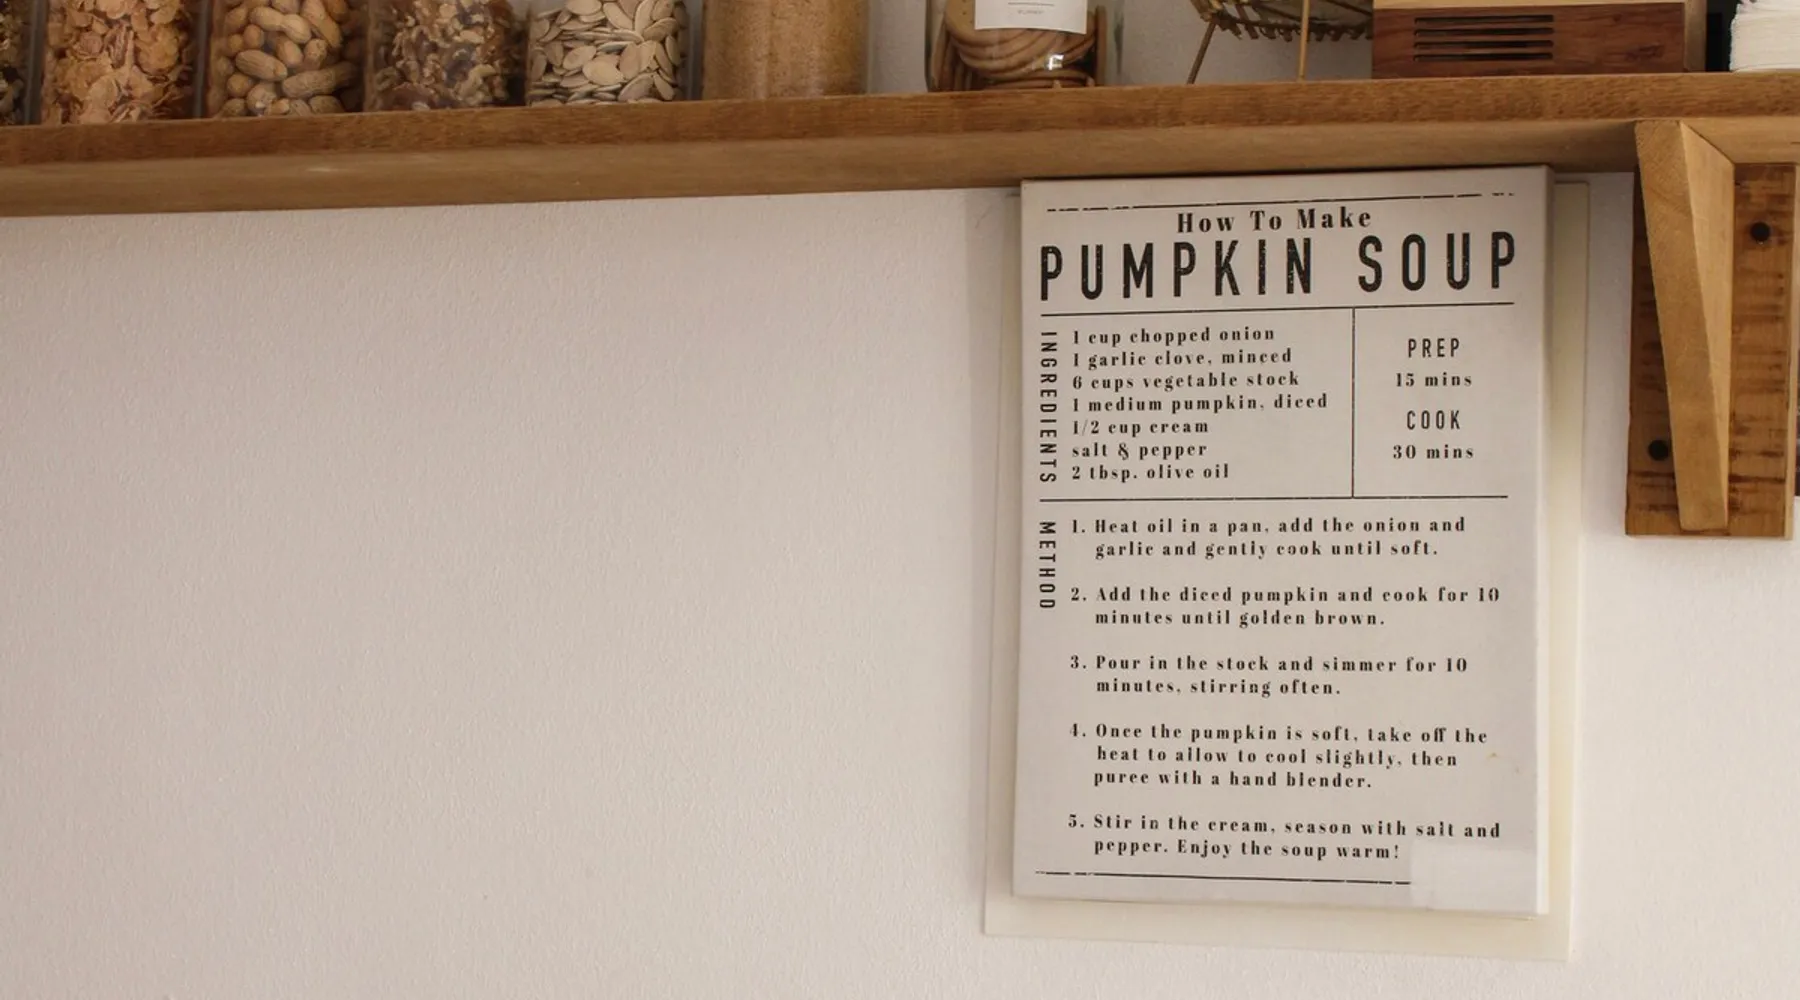 How To Make
PUMPKIN SOUP
INGREDIENTS
1 cup chopped onion
1 garlic clove, minced
6 cups vegetable stock
1 medium pumpkin, diced
1/2 cup cream
salt & pepper
2 tbsp. olive oil
PREP
15 mins
COOK
30 mins
METHOD
1. Heat oil in a pan, add the onion and
garlic and gently cook until soft.
2. Add the diced pumpkin and cook for 10
minutes until golden brown.
3. Pour in the stock and simmer for 10
minutes, stirring often.
4. Once the pumpkin is soft, take off the
heat to allow to cool slightly, then
puree with a hand blender.
5. Stir in the cream, season with salt and
pepper. Enjoy the soup warm!